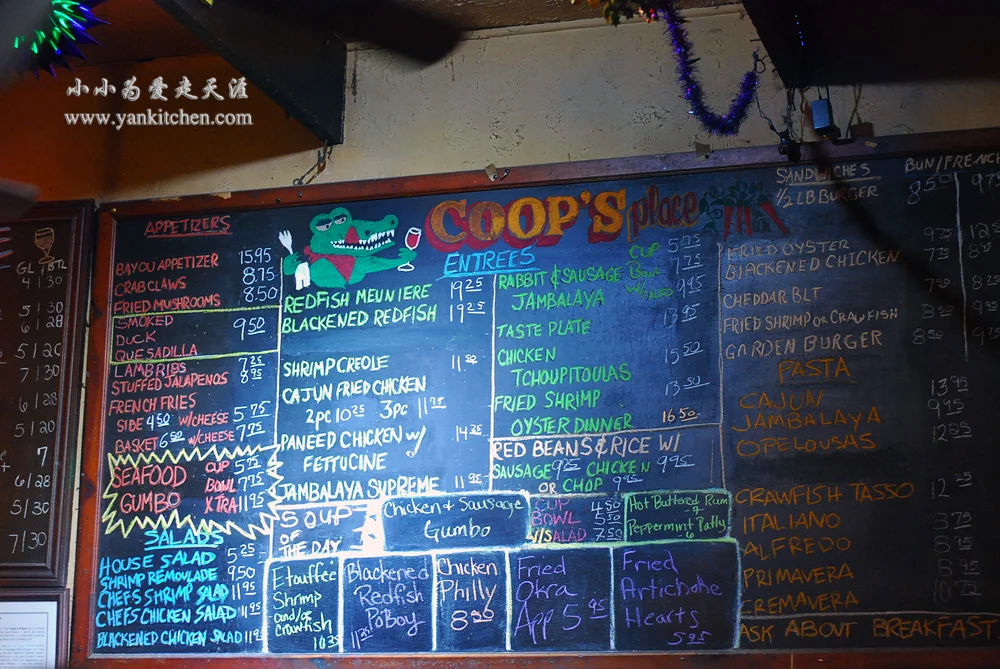 小小为爱走天涯
www.yankitchen.com
COOP'S place
APPETIZERS
BAYOU APPETIZER 15.95
CRAB CLAWS 8.75
FRIED MUSHROOMS 8.50
SMOKED
DUCK 9.50
QUESADILLA
LAMB RIBS 7.25
STUFFED JALAPENOS 8.95
FRENCH FRIES
SIDE 4.50 w/CHEESE 5.75
BASKET 6.50 w/CHEESE 7.75
SEAFOOD CUP 5.75
GUMBO BOWL 7.75
XTRA 11.95
SALADS
HOUSE SALAD 5.25
SHRIMP REMOULADE 9.50
CHEFS SHRIMP SALAD 11.95
CHEFS CHICKEN SALAD 11.95
BLACKENED CHICKEN SALAD 11.95
ENTREES
REDFISH MEUNIERE 19.25
BLACKENED REDFISH 19.25
SHRIMP CREOLE 11.50
CAJUN FRIED CHICKEN
2pc 10.25 3pc 11.75
PANEED CHICKEN w/ 14.35
FETTUCINE
JAMBALAYA SUPREME 11.95
CUP 5.75
RABBIT & SAUSAGE Bowl 7.75
JAMBALAYA 9.95
TASTE PLATE 13.95
CHICKEN 15.50
TCHOUPITOULAS
FRIED SHRIMP 13.50
OYSTER DINNER 16.50
RED BEANS & RICE W/
SAUSAGE 9.25 CHICKEN 9.95
OR CHOP 9.95
SOUP
OF
THE DAY
Chicken & Sausage
Gumbo
CUP 4.50
BOWL 5.50
W/SALAD 7.50
Hot Buttered Rum
-4
Peppermint Patty
-6
Etouffée
Shrimp
and/or
Crawfish
10.35
Blackened
Redfish
PoBoy
11.25
Chicken
Philly
8.50
Fried
Okra
App 5.95
Fried
Artichoke
Hearts
5.95
SANDWICHES BUN/FRENCH
1/2 LB BURGER 8.50
FRIED OYSTER
BLACKENED CHICKEN
CHEDDAR BLT
FRIED SHRIMP OR CRAWFISH
GARDEN BURGER
PASTA
CAJUN 13.95
JAMBALAYA 9.95
OPELOUSAS 12.95
CRAWFISH TASSO
ITALIANO
ALFREDO 8.95
PRIMAVERA
CREMAVERA
ASK ABOUT BREAKFAST